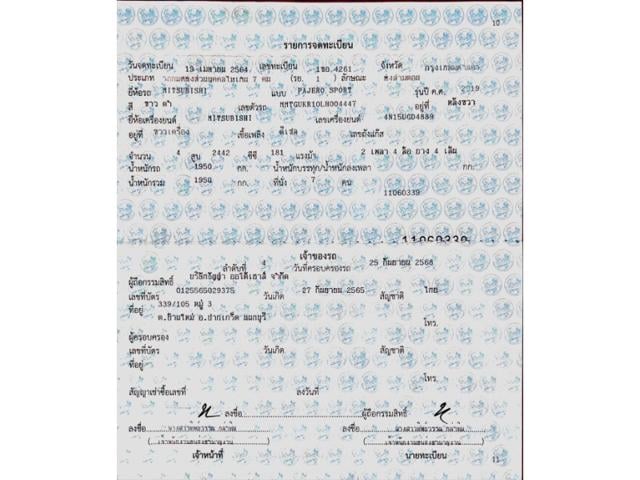 10
รายการจดทะเบียน
วันจดทะเบียน 19 เมษายน 2564 เลขทะเบียน 4261 จังหวัด กรุงเทพมหานคร
ประเภท รถยนต์นั่งส่วนบุคคลไม่เกิน 7 คน (รย. 1 ) ลักษณะ
ยี่ห้อรถ MITSUBISHI แบบ PAJERO SPORT รุ่นปี ค.ศ. 2019
สี ขาว ดำ เลขตัวรถ MMTGUKR10LH004447 อยู่ที่
ยี่ห้อเครื่องยนต์ MITSUBISHI เลขเครื่องยนต์ 4N15UGD4889
อยู่ที่ เชื้อเพลิง ดีเซล เลขถังแก๊ส
จำนวน 4 สูบ 2442 ซีซี 181 แรงม้า 2 เพลา 4 ล้อ ยาง 4 เส้น
น้ำหนักรถ 1950 กก. น้ำหนักบรรทุก/น้ำหนักลงเพลา กก.
น้ำหนักรวม 1950 กก. ที่นั่ง 7 คน
11060339
11060339
เจ้าของรถ
ลำดับที่ 4 วันที่ครอบครองรถ 25 กันยายน 2568
ผู้ถือกรรมสิทธิ์ จำกัด
เลขที่บัตร 0125565029375 วันเกิด 27 กันยายน 2565 สัญชาติ ไทย
ที่อยู่ 339/105 หมู่ 3
อ.ปากเกร็ด นนทบุรี โทร.
ผู้ครอบครอง
เลขที่บัตร วันเกิด สัญชาติ
ที่อยู่
โทร.
สัญญาเช่าซื้อเลขที่ ลงวันที่
ลงชื่อ ผู้ถือกรรมสิทธิ์
ลงชื่อ ลงชื่อ
เจ้าหน้าที่ นายทะเบียน
11